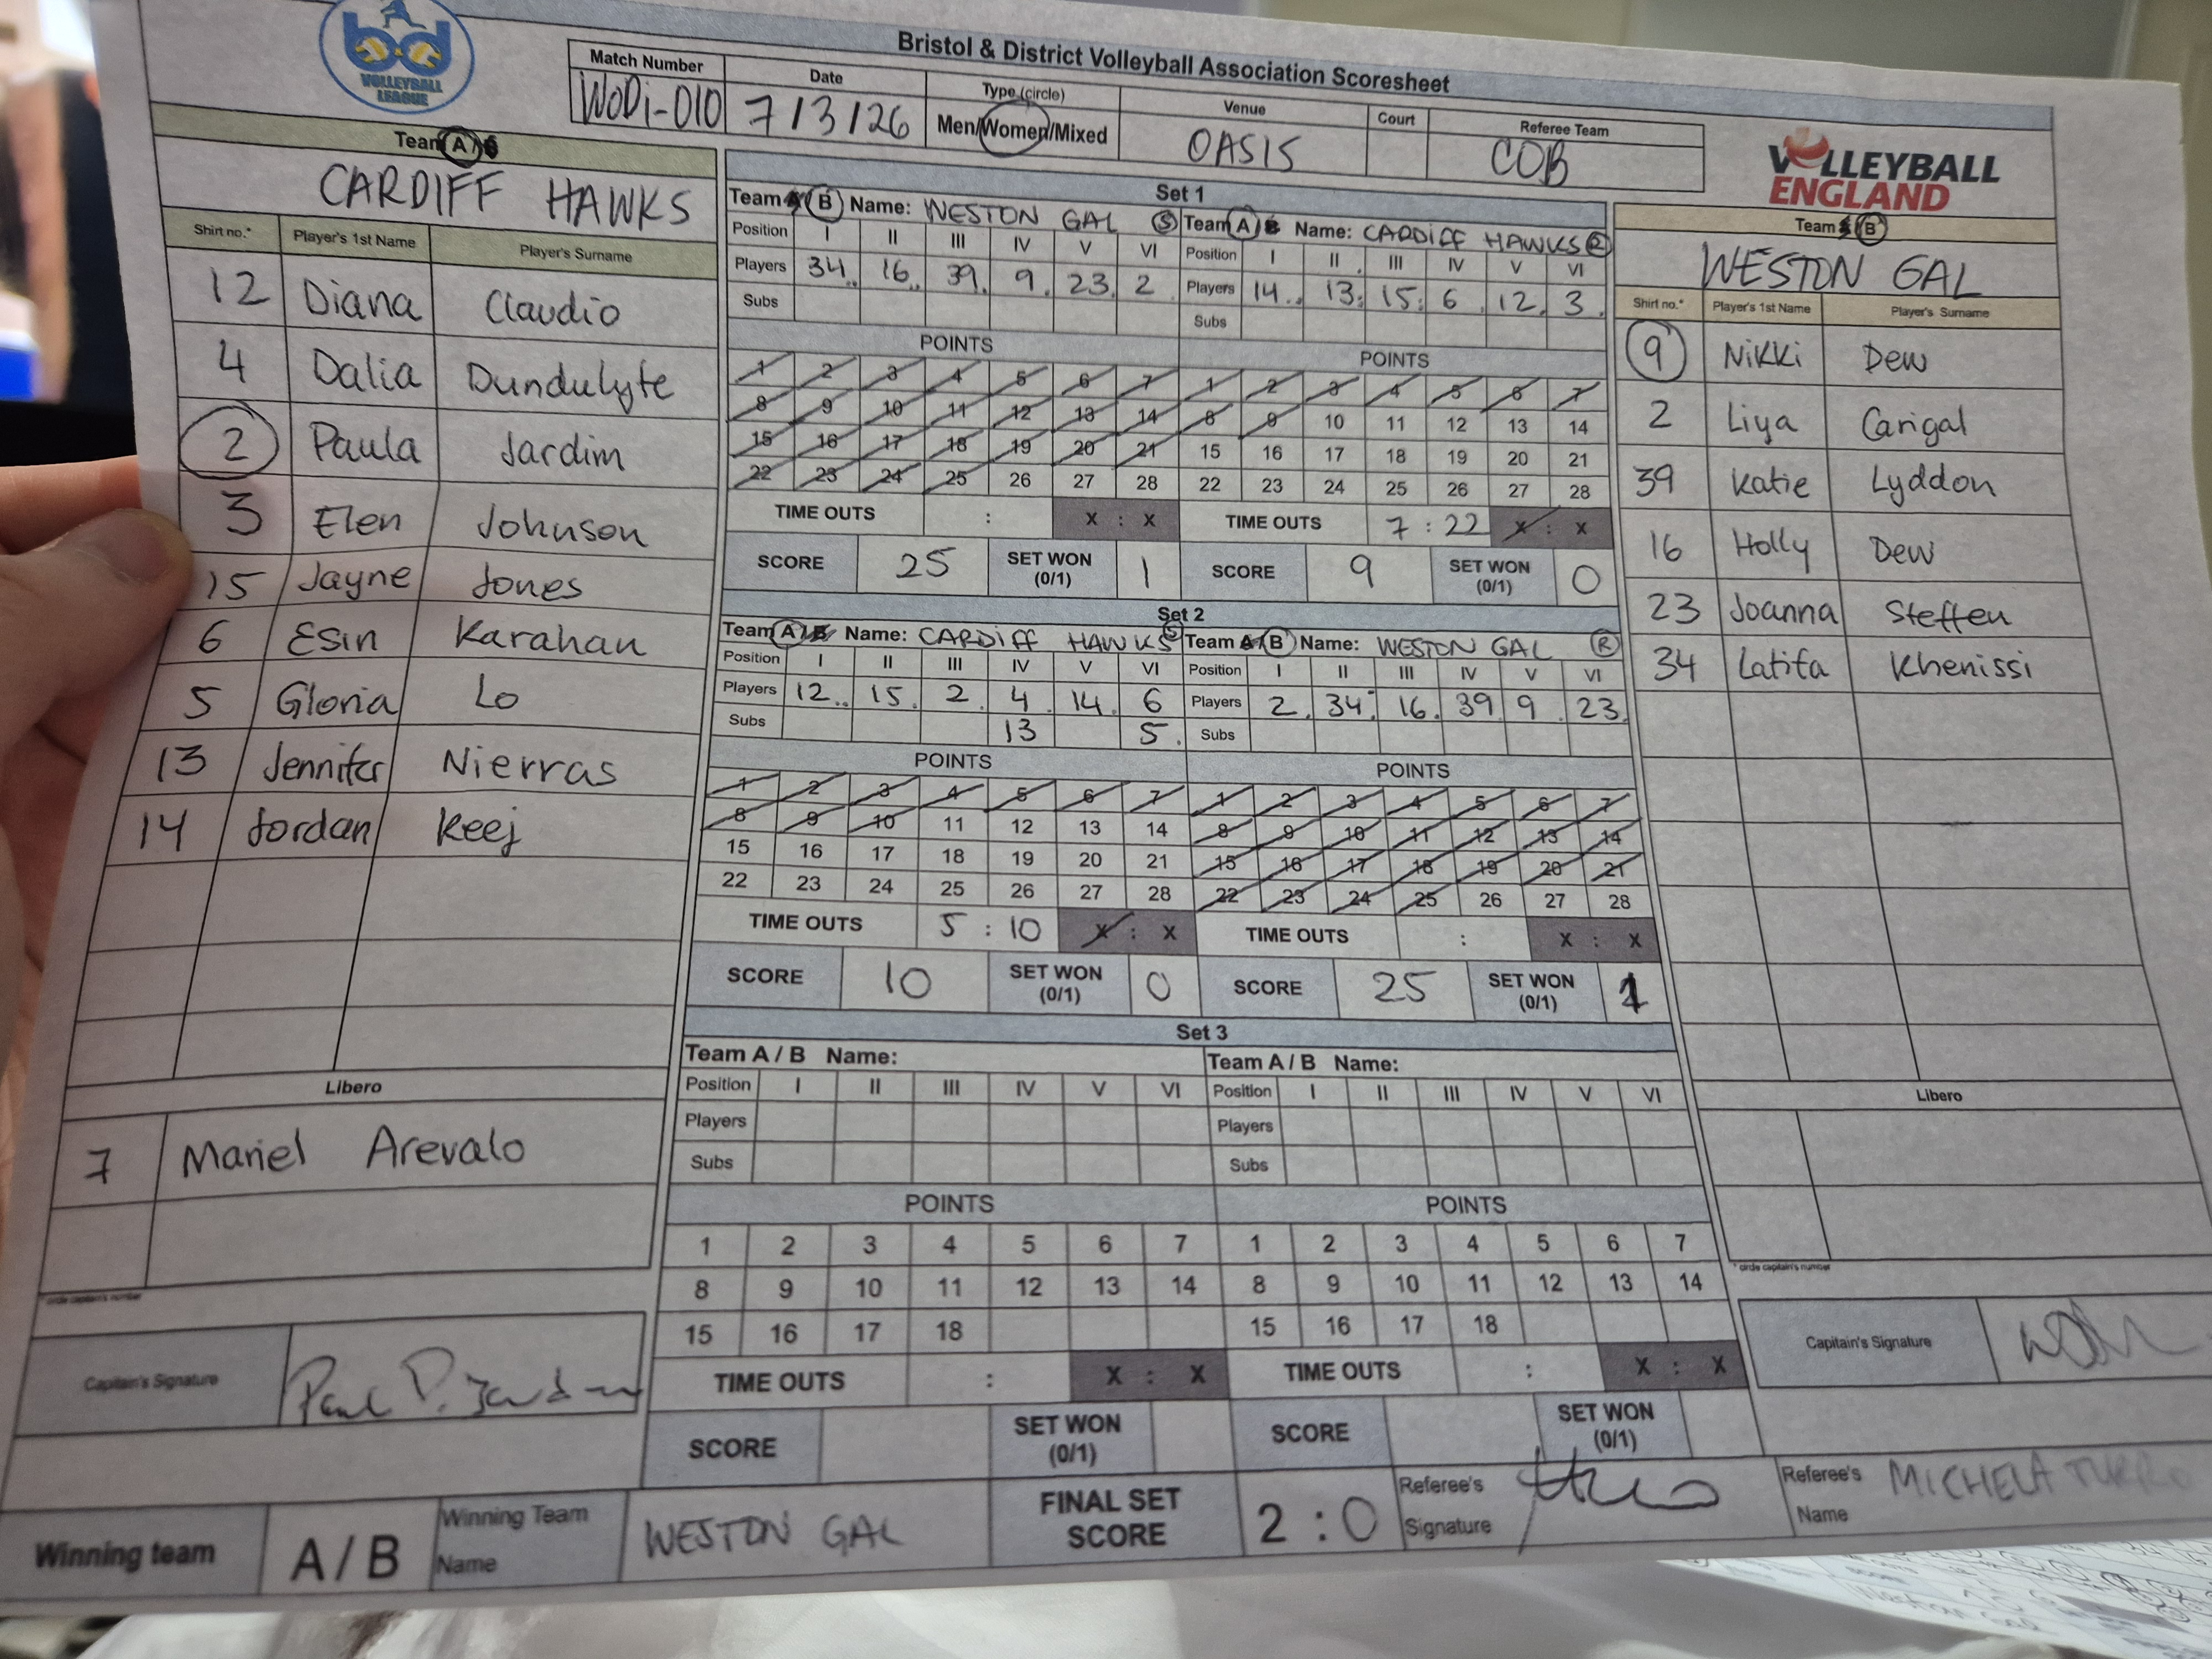 bd
VOLLEYBALL
LEAGUE
Bristol & District Volleyball Association Scoresheet
Match Number Date Type (circle) Venue Court Referee Team
WoDi-010 7/3/26 Men/Women/Mixed OASIS COB
VOLLEYBALL
ENGLAND
Team A/B
CARDIFF HAWKS
Shirt no.* Player's 1st Name Player's Surname
12 Diana Claudio
4 Dalia Dundulyte
2 Paula Jardim
3 Elen Johnson
15 Jayne Jones
6 Esin Karahan
5 Gloria Lo
13 Jennifer Nierras
14 Jordan Keej
Libero
7 Mariel Arevalo
* circle captain's number
Capitain's Signature
Set 1
Team A/B Name: WESTON GAL S Team A/B Name: CARDIFF HAWKS R
Position I II III IV V VI Position I II III IV V VI
Players 34 16 39 9 23 2 Players 14 13 15 6 12 3
Subs Subs
POINTS POINTS
1 2 3 4 5 6 7 1 2 3 4 5 6 7
8 9 10 11 12 13 14 8 9 10 11 12 13 14
15 16 17 18 19 20 21 15 16 17 18 19 20 21
22 23 24 25 26 27 28 22 23 24 25 26 27 28
TIME OUTS : X : X TIME OUTS 7 : 22 X : X
SCORE 25 SET WON (0/1) 1 SCORE 9 SET WON (0/1) 0
Set 2
Team A/B Name: CARDIFF HAWKS S Team A/B Name: WESTON GAL R
Position I II III IV V VI Position I II III IV V VI
Players 12 15 2 4 14 6 Players 2 34 16 39 9 23
Subs 13 5 Subs
POINTS POINTS
1 2 3 4 5 6 7 1 2 3 4 5 6 7
8 9 10 11 12 13 14 8 9 10 11 12 13 14
15 16 17 18 19 20 21 15 16 17 18 19 20 21
22 23 24 25 26 27 28 22 23 24 25 26 27 28
TIME OUTS 5 : 10 X : X TIME OUTS : X : X
SCORE 10 SET WON (0/1) 0 SCORE 25 SET WON (0/1) 1
Set 3
Team A / B Name: Team A / B Name:
Position I II III IV V VI Position I II III IV V VI
Players Players
Subs Subs
POINTS POINTS
1 2 3 4 5 6 7 1 2 3 4 5 6 7
8 9 10 11 12 13 14 8 9 10 11 12 13 14
15 16 17 18 15 16 17 18
TIME OUTS : X : X TIME OUTS : X : X
SCORE SET WON (0/1) SCORE SET WON (0/1)
Team B
WESTON GAL
Shirt no.* Player's 1st Name Player's Surname
9 Nikki Dew
2 Liya Carigal
39 Katie Lyddon
16 Holly Dew
23 Joanna Steffen
34 Latifa Khenissi
Libero
* circle captain's number
Capitain's Signature
Winning team A / B Winning Team Name WESTON GAL FINAL SET SCORE 2 : 0 Referee's Signature Referee's Name MICHELA TURRO